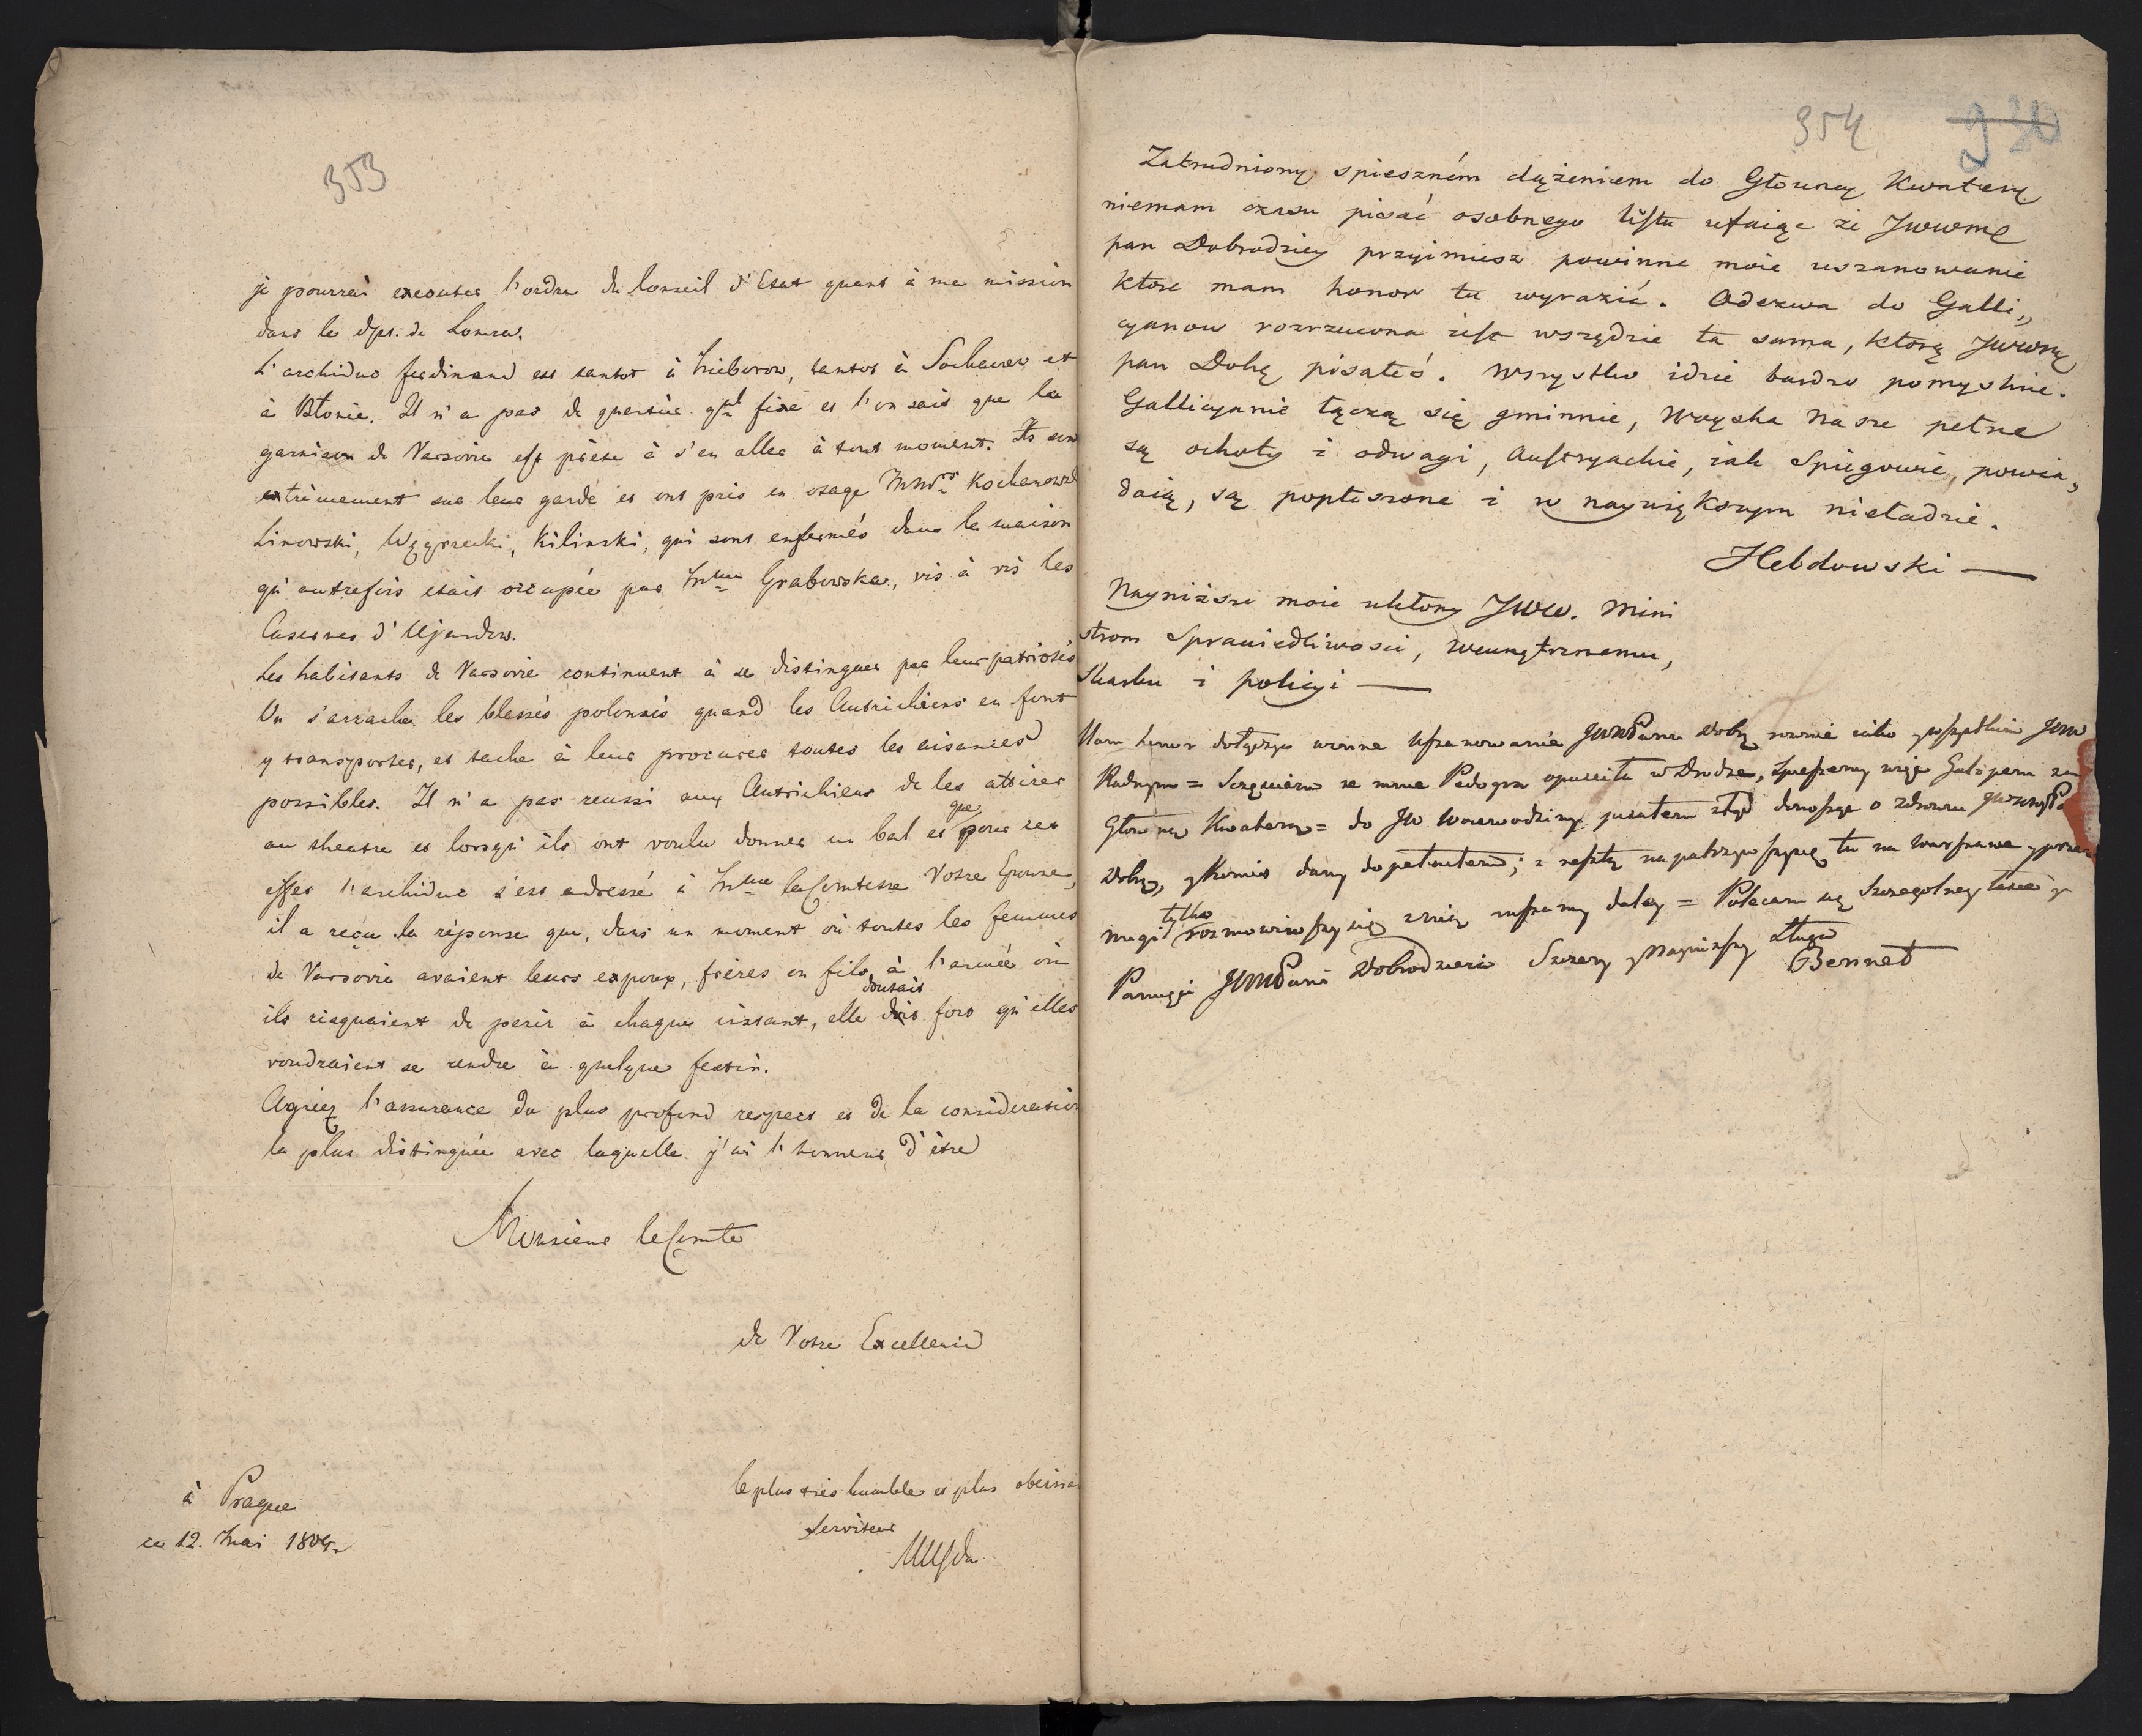 353
je pourrai executer l'ordre du Conseil d'Etat quant à ma mission
dans le dpt. de Lomza.
L'archiduc ferdinand est tantot à Nieborow, tantot à Sochaczew et
à Błonie. Il n'a pas de quartier gral fixe et l'on sait que la
garnison de Varsovie est prête à s'en aller à tout moment. Ils sont
extrimement sur leur garde et ont pris en otage MMrs Kochanowski
Linowski, Węgrzecki, Kilinski, qui sont enfermés dans la maison
qu'autrefois etait occupée par Mme Grabowska, vis à vis les
Casernes d'Ujazdow.
Les habitants de Varsovie continuent à se distinguer par leur patriotis
On s'arrache les blessés polonais quand les Autrichiens en font
y transporter, et tache à leur procurer toutes les aisances
possibles. Il n'a pas reussi aux Autrichiens de les attirer
au theatre et lorsqu'ils ont voulu donner un bal et que pour cet
effet l'archiduc s'est adressé à Mme la Comtesse Votre Epouse,
il a reçu la réponse que, dans un moment où toutes les femmes
de Varsovie avaient leurs expoux, frères ou fils à l'armée où
ils risquaient de perir à chaque instant, elle doutait fort qu'elles
voudraient se rendre à quelque festin.
Agriez l'assurance du plus profond respect et de la consideration
la plus distinguée avec laquelle j'ai l'honneur d'être
Monsieur le Comte
de Votre Excellence
le plus très humble et plus obeissa
serviteur
à Prague
ce 12. Mai 1809.
354
930
Zatrudniony spieszném dążeniem do Głowney Kwatery
niemam czasu pisać osobnego listu ufaiąc że JWWmć
pan Dobrodziey przyimiesz powinne moie uszanowanie
ktore mam honor tu wyrazić. Odezwa do Galli„
cyanow rozrzucona iest wszędzie ta sama, ktorą JWWmć
pan Dobę pisałeś. Wszystko idzie bardzo pomyslnie.
Gallicyanie łączą się gminnie, Woyska Nasze pełne
są ochoty i odwagi, Austryackie, iak Spiegowie, powia„
daią, są popłoszone i w naywiększym nieładzie.
Hebdowski —
Nayniższe moie ukłony JWW. Mini
strom Sprawiedliwosci, Wewnętrznemu,
Skarbu i policyi —
Mam honor dołączyć winne Uszanowanie JWWPanu Dobę rownie iako y wszystkim JWW
Radnym = Szczęsciem ze mnie Podogra opusciła w Drodze, Spieszemy więc Galopem za
Głowną Kwaterą = do JW Woiewodziny pisałem ztąd donosząc o zdrowiu
Dobry, y Komis dany dopełniłem; z resztą napatrzywszysię tu na Warszawę y przez
Mugil tylko rozmowiwszy się z nią ruszamy daley = Polecam się Szczegolney łasce y
Pamięci JWWPana Dobrodzieia Szczery y Nayniższy Sługa
Bennet